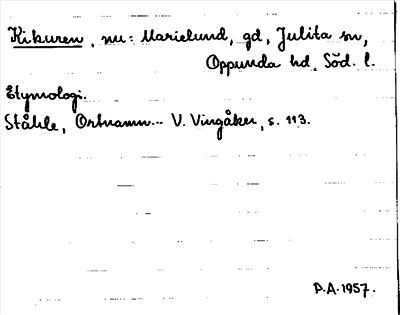 Kikuren, nu: Marielund, gd, Julita sn,
Oppunda hd, Söd. l.
Etymologi.
Ståhle, Ortnamn... V. Vingåker, s. 113.
P.A. 1957.